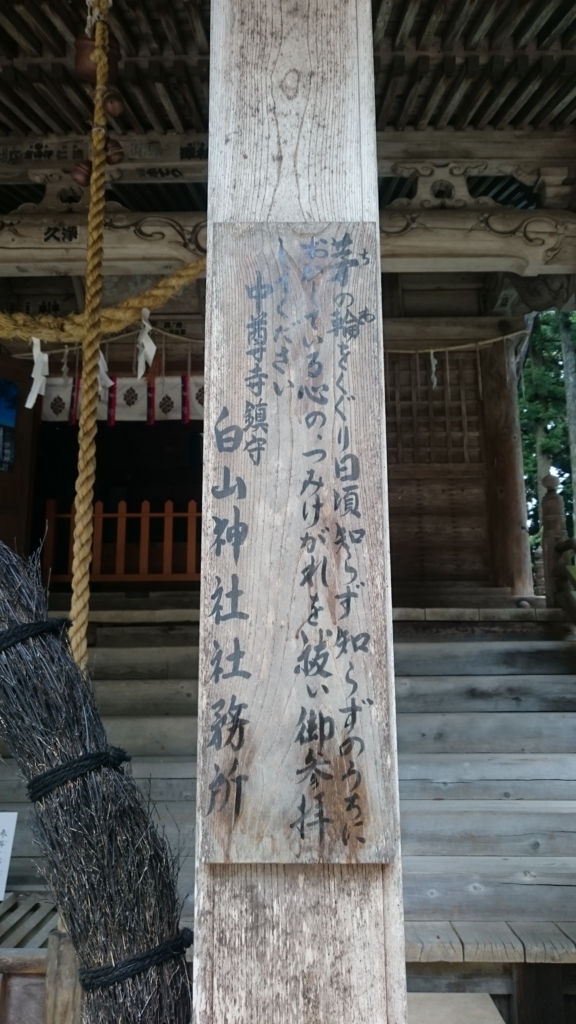 茅の輪をくぐり日頃知らず知らずのうちに
おかしている心のつみけがれを祓い御参拝
してください
中尊寺鎮守
白山神社社務所
ちのわ
久澤